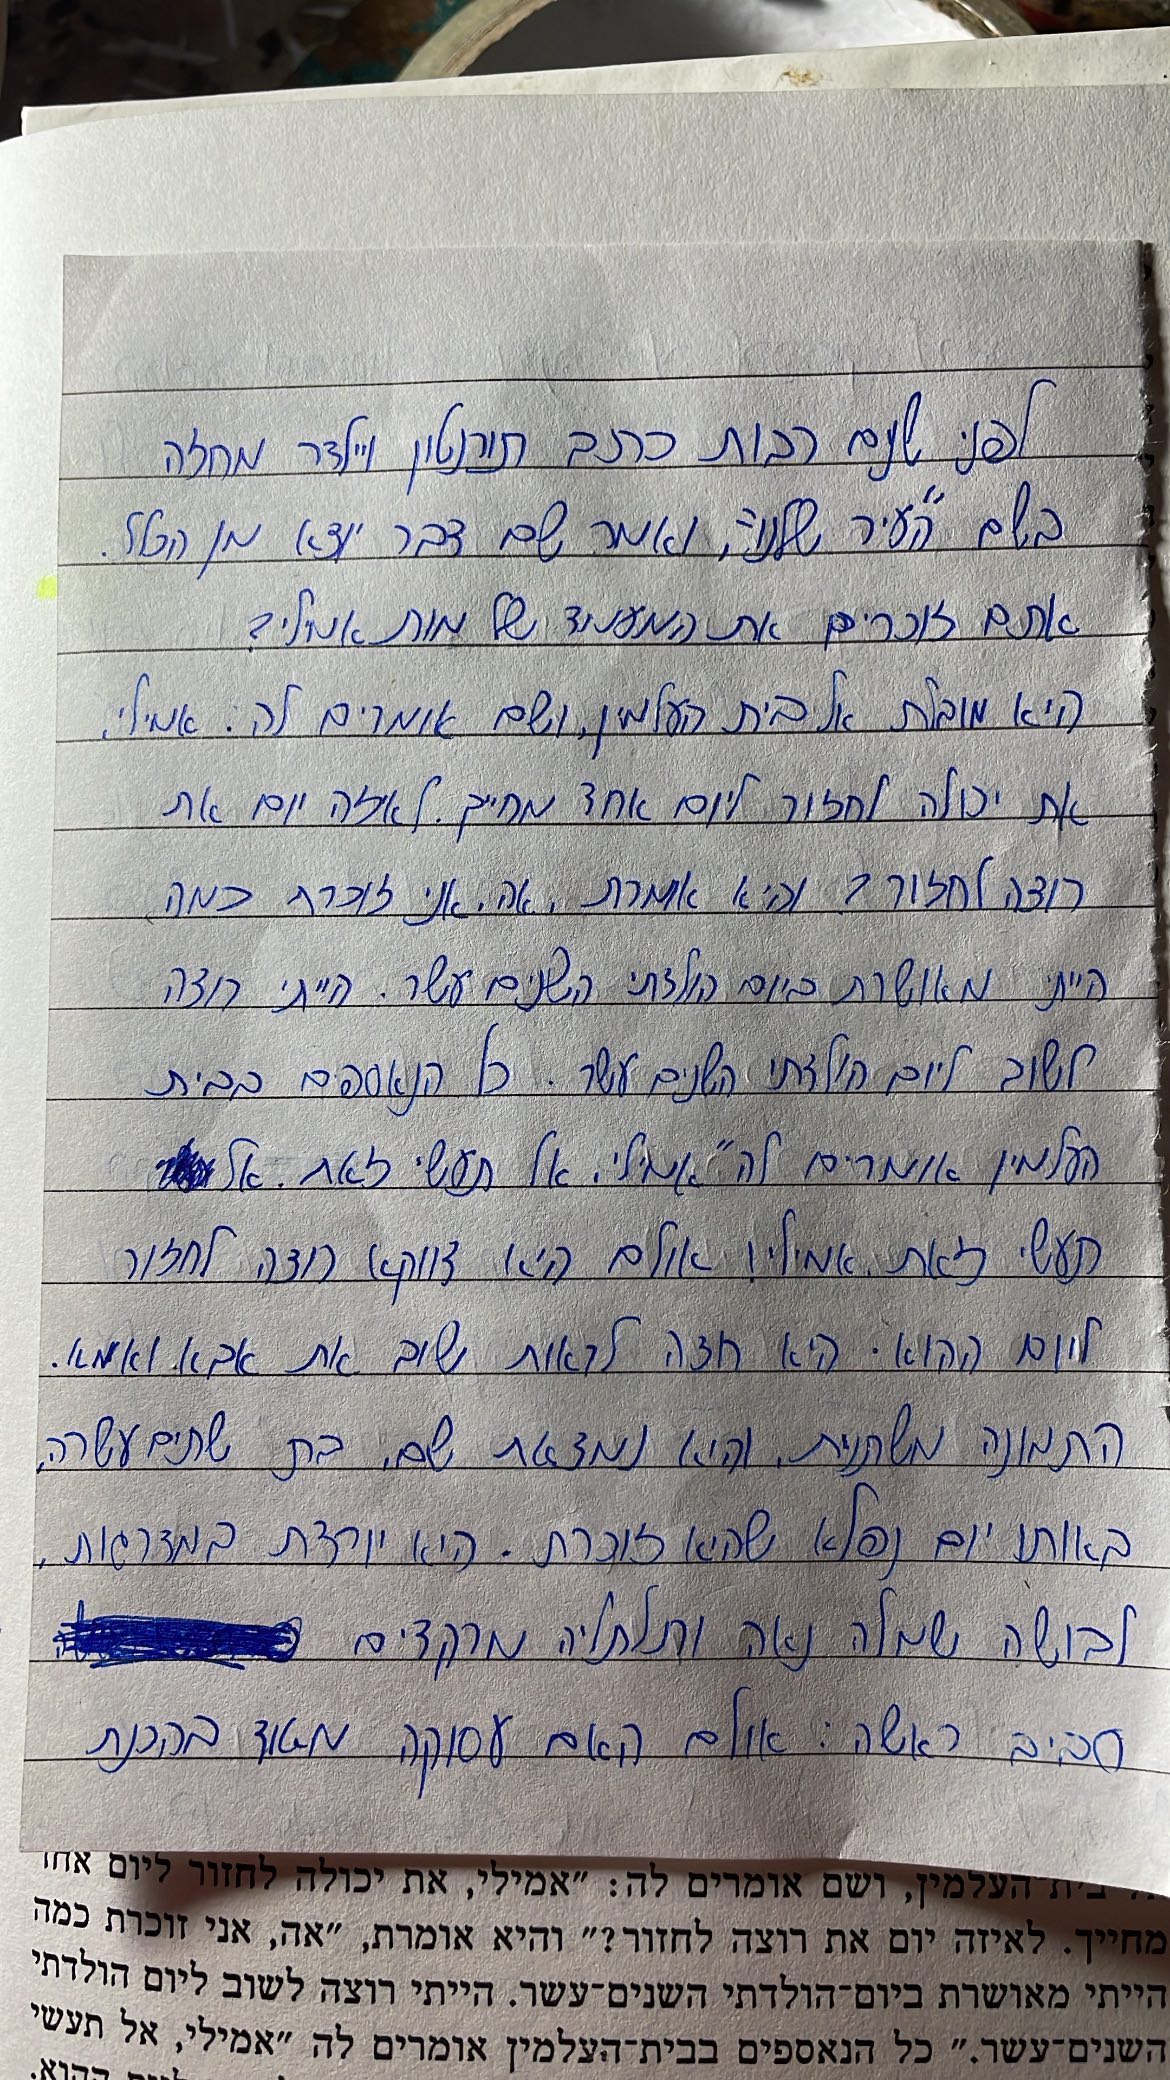 לפני שנים רבות כתב תורנטון ויילדר מחזה
בשם "העיר שלנו", ואמר שם דבר יוצא מן הכלל.
אתם זוכרים את המעמד של מות אמילי?
היא מובלת אל בית העלמין, ושם אומרים לה: אמילי,
את יכולה לחזור ליום אחד מחייך. לאיזה יום את
רוצה לחזור? והיא אומרת, אה, אני זוכרת כמה
הייתי מאושרת ביום הולדתי השנים עשר. הייתי רוצה
לשוב ליום הולדתי השנים עשר. כל הנאספים בבית
העלמין אומרים לה "אמילי, אל תעשי זאת. אל
תעשי זאת, אמילי! אולם היא דווקא רוצה לחזור
ליום ההוא. היא רוצה לראות שוב את אבא ואמא.
התמונה משתנית, והיא נמצאת שם, בת שתים עשרה,
באותו יום נפלא שהיא זוכרת. היא יורדת במדרגות,
לבושה שמלה נאה ותלתליה מרקדים
סביב ראשה: אולם האם עסוקה מאוד בהכנת
בית־העלמין, ושם אומרים לה: "אמילי, את יכולה לחזור ליום אחד
מחייך. לאיזה יום את רוצה לחזור?" והיא אומרת, "אה, אני זוכרת כמה
הייתי מאושרת ביום־הולדתי השנים־עשר. הייתי רוצה לשוב ליום הולדתי
השנים־עשר." כל הנאספים בבית־העלמין אומרים לה "אמילי, אל תעשי
ההוא.